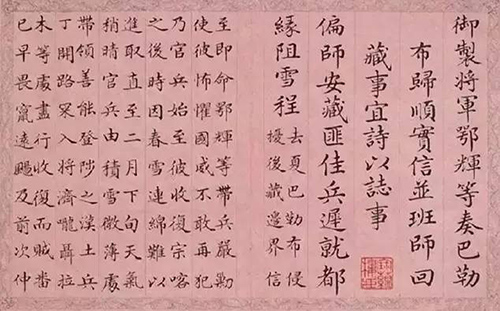 御製將軍鄂輝等奏巴勒
布歸順實信並班師回
藏事宜詩以誌事
偏師安藏匪佳兵遲就都
緣阻雪程去夏巴勒布侵
擾後藏邊界信
至即命鄂輝等帶兵嚴勦
使彼怖懼國威不敢再犯
乃官兵始至彼收復宗喀
之後時因春雪連綿難以
進取直至二月下旬天氣
稍晴官兵由積雪微薄處
帶領善能登陟之漢土兵
丁開路冞入將濟嚨聶拉
木等處盡行收復而賊番
已早畏竄遠颺及前次仲